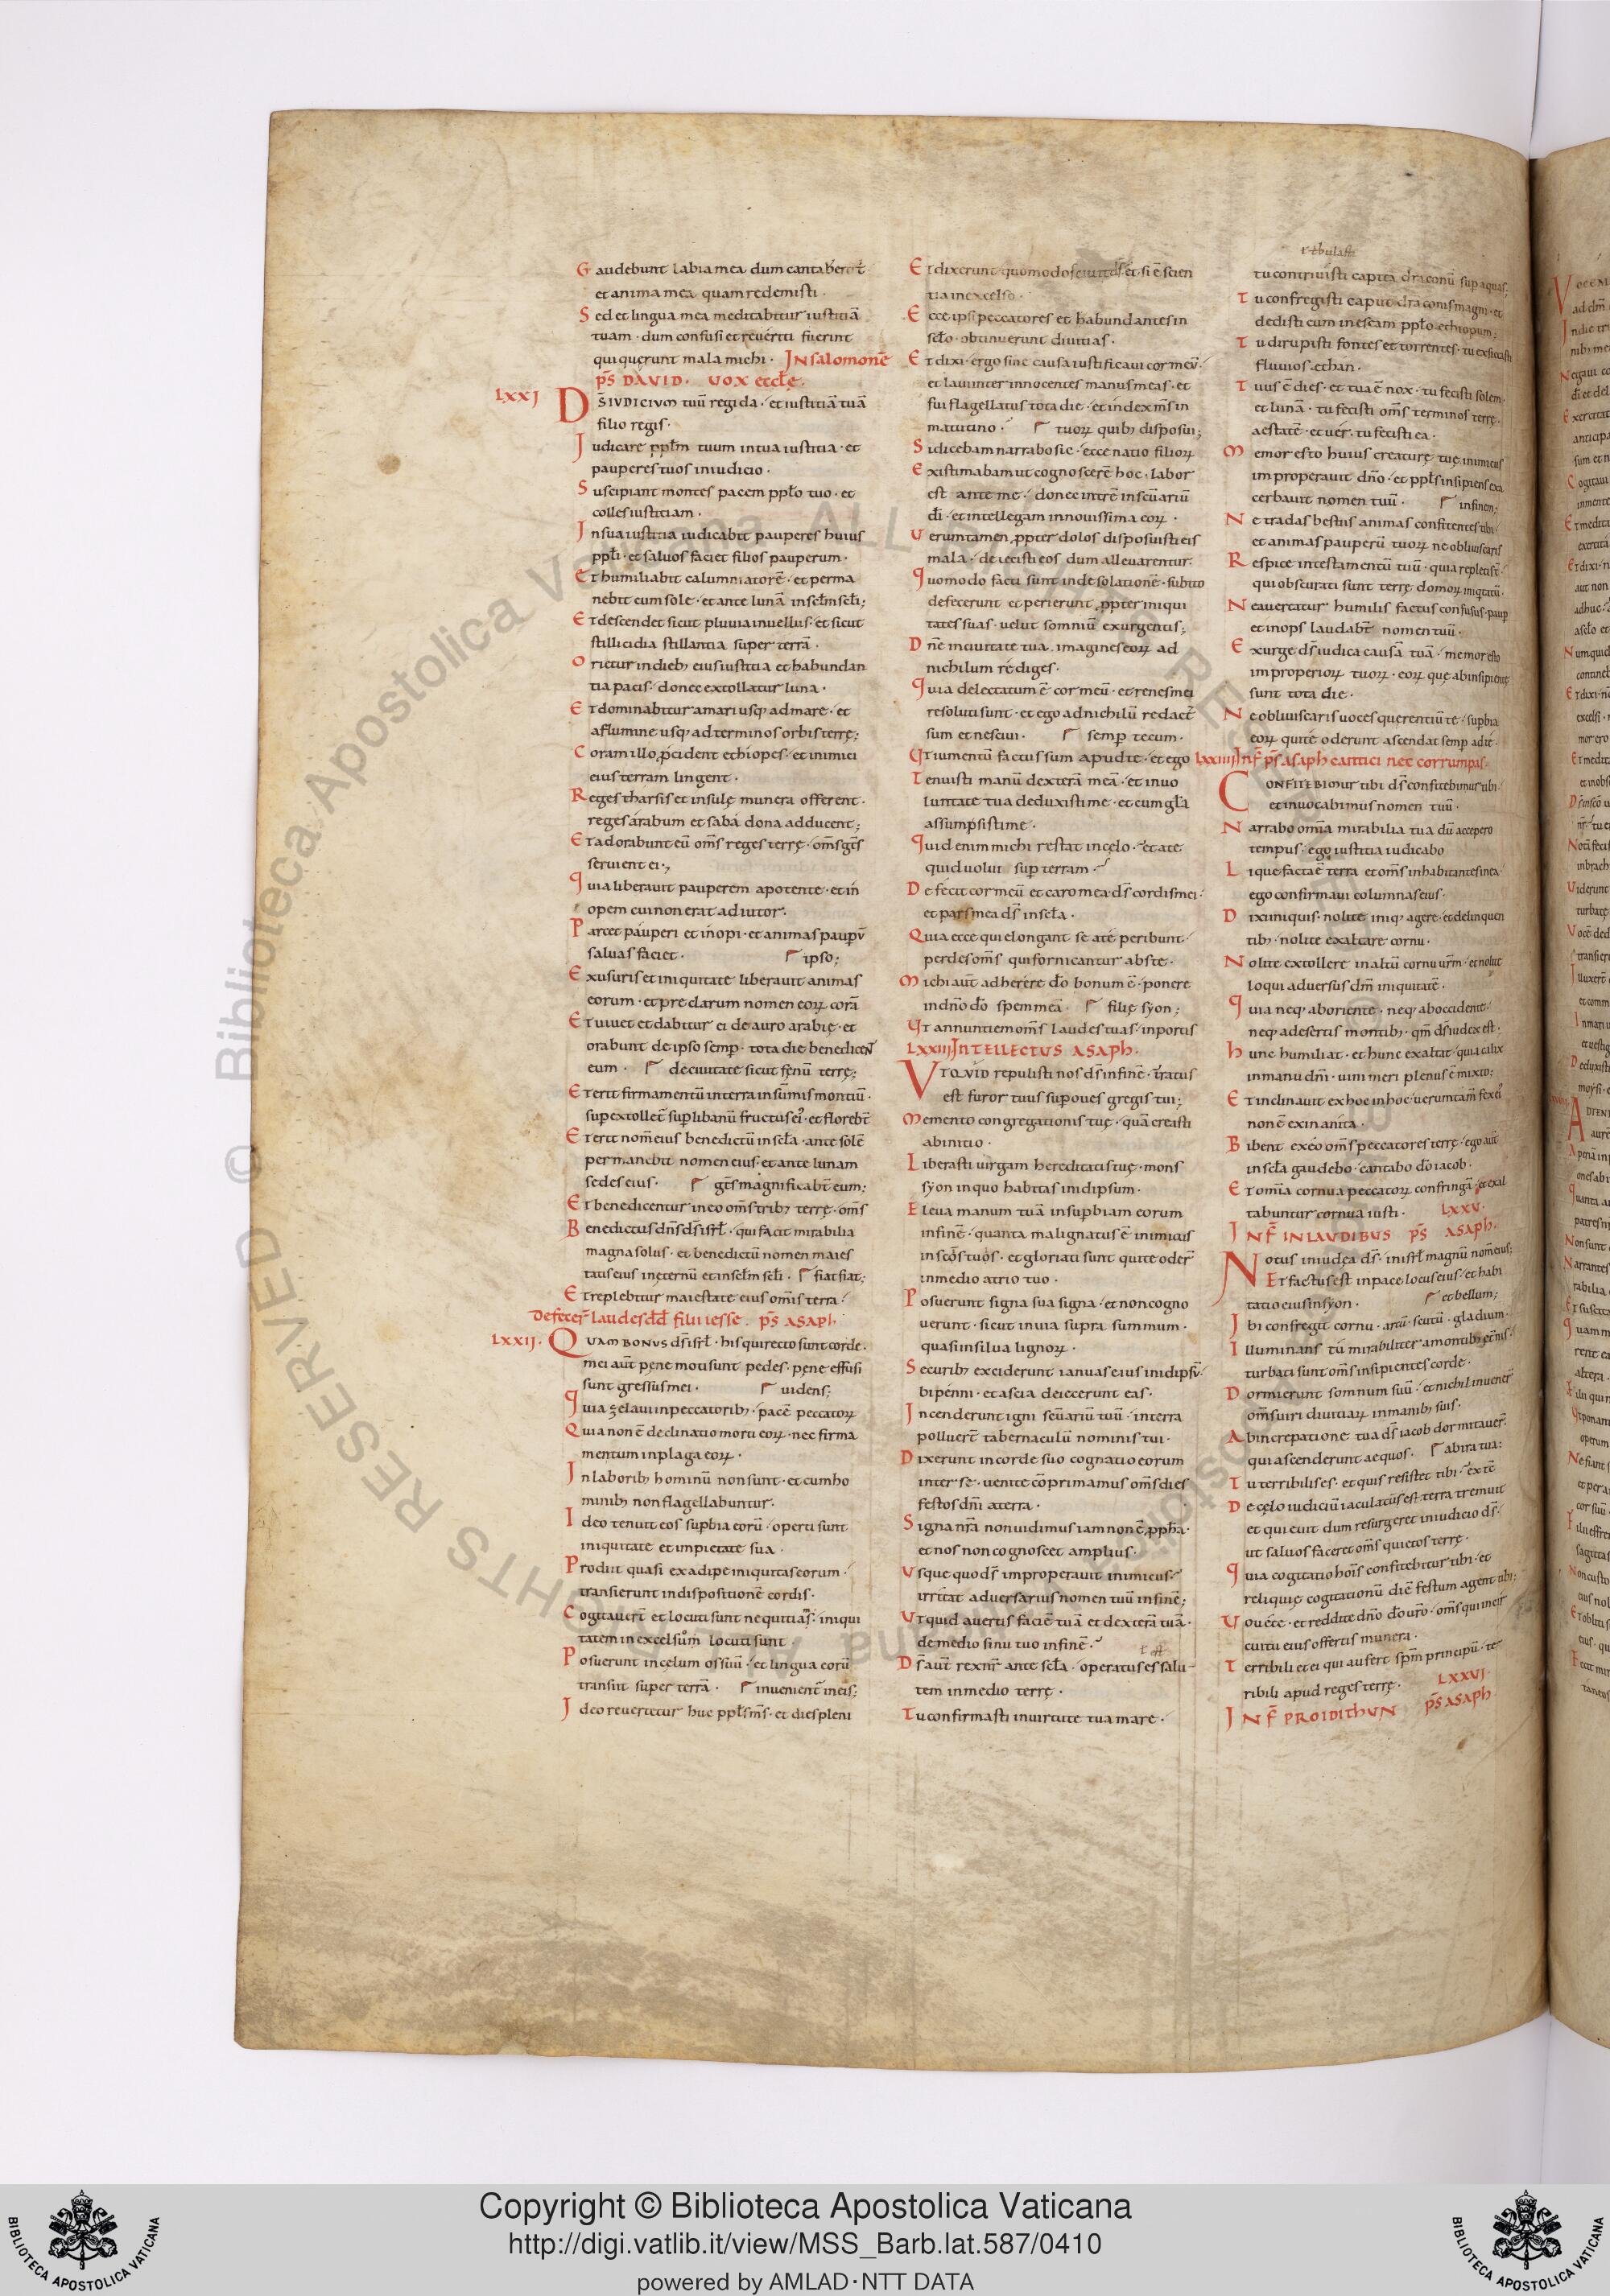 Gaudebunt labia mea dum cantabero t̄
et anima mea quam redemisti ·
Sed et lingua mea meditabitur iustitiā
tuam · dum confusi et reuerti fuerint
qui querunt mala michi · IN salomonē
ps̄ DAVID · VOX eccłę ·
LXXI
DS̄ IVDICIVM tuū regi da · et iustitiā tuā
filio regis ·
Iudicare pplm̄ tuum in tua iustitia · et
pauperes tuos in iudicio ·
Suscipiant montes pacem ppło tuo · et
colles iustitiam ·
In sua iustitia iudicabit pauperes huius
ppłi · et saluos faciet filios pauperum ·
Et humiliabit calumniatorē · et perma
nebit cum sole · et ante lunā in sclm̄ scłi;
Et descendet sicut pluuia in uellus · et sicut
stillicidia stillantia super terrā ·
Orietur in dieb; eius iustitia et habundan
tia pacis · donec extollatur luna ·
Et dominabitur a mari usq; ad mare · et
a flumine usq; ad terminos orbis terrę;
Coram illo p̄cident ethiopes · et inimici
eius terram lingent ·
Reges tharsis et insulę munera offerent ·
reges arabum et saba dona adducent;
Et adorabunt eū oms̄ reges terrę · oms̄ gts̄
seruient ei ·
Quia liberauit pauperem a potente · et in
opem cui non erat adiutor ·
Parcet pauperi et inopi · et animas paupū
saluas faciet · ipso;
Ex usuris et iniquitate liberauit animas
eorum · et preclarum nomen eoꝝ corā
Et uiuet et dabitur ei de auro arabię · et
orabunt de ipso semp · tota die benedicent̄
eum · de ciuitate sicut fęnū terrę;
Et erit firmamentū in terra in sum̄is montiū ·
sup extollet̄ sup libanū fructus ei⁹ · et florebt̄
Et erit nom̄ eius benedictū in scła · ante solē
permanebit nomen eius · et ante lunam
sedes eius · gts̄ magnificabt̄ eum;
Et benedicentur in eo oms̄ trib; terrę · oms̄
Benedictus dn̄s ds̄ isrł · qui facit mirabilia
magna solus · et benedictū nomen maies
tatis eius in ęternū et in sclm̄ scłi · fiat fiat;
Et replebitur maiestate eius om̄is terra ·
Defecer̄ laudes dd̄ filii iesse · ps̄ ASAPh
LXXII · QVAM BONVS ds̄ isrł · his qui recto sunt corde ·
mei aut̄ pene moti sunt pedes · pęne effusi
sunt gressus mei · uidens;
Quia zelaui in peccatorib; · pacē peccatoꝝ
Quia non ē declinatio morti eoꝝ · nec firma
mentum in plaga eoꝝ ·
In laborib; hominū non sunt · et cum ho
minib; non flagellabuntur ·
Ideo tenuit eos supbia eorū · operti sunt
iniquitate et impietate sua ·
Prodiit quasi ex adipe iniquitas eorum ·
transierunt in dispositionē cordis ·
Cogitauer̄t et locuti sunt nequitias · iniqui
tatem in excelsum locuti sunt ·
Posuerunt in celum os suū · et lingua eorū
transiit super terrā · inuenient̄ in eis;
Ideo reuertetur huc ppłs ms̄ · et dies pleni
Et dixerunt quomodo sciuit ds̄ · et si ē scien
tia in excelso ·
Ecce ipsi peccatores et habundantes in
scło · obtinuerunt diuitias ·
Et dixi · ergo sine causa iustificaui cor meū ·
et laui inter innocentes manus meas · et
fui flagellatus tota die · et index ms̄ in
matutino · tuoꝝ quib; disposui;
Si dicebam narrabo sic · ecce natio filioꝝ
Existimabam ut cognoscerē hoc · labor
est ante me · donec intrē in scūariū
dī · et intellegam in nouissima eoꝝ ·
Veruntamen ꝓpter dolos disposuisti eis
mala · deiecisti eos dum alleuarentur ·
Quomodo facti sunt in desolationē · subito
defecerunt et perierunt ꝓpter iniqui
tates suas · uelut somniū exurgentis;
Dn̄e in ciuitate tua · imagines eoꝝ ad
nichilum rediges ·
Quia delectatum ē cor meū · et renes mei
resoluti sunt · et ego ad nichilū redact̄
sum et nesciui · semp tecum ·
Vt iumentū factus sum apud te · et ego
Tenuisti manū dexterā meā · et in uo
luntate tua deduxisti me · et cum głā
assumpsisti me ·
Quid enim michi restat in cęlo · et a te
quid uolui sup terram ·
Defecit cor meū et caro mea · ds̄ cordis mei ·
et pars mea ds̄ in scła ·
Quia ecce qui elongant se a te peribunt ·
perdes oms̄ qui fornicantur abs te ·
Michi aut̄ adherere dō bonum ē · ponere
in dn̄o dō spem meā · filię syon;
Vt annuntiem oms̄ laudes tuas · in portis
LXXIII INTELLECTVS ASAPh ·
VT QVID repulisti nos ds̄ in finē · iratus
est furor tuus sup oues gregis tui;
Memento congregationis tuę · quā creasti
ab initio ·
Liberasti uirgam hereditatis tuę · mons
syon in quo habitas in idipsum ·
Eleua manum tuā in supbiam eorum
in finē · quanta malignatus ē inimicus
in scōs tuos · et gloriati sunt qui te oder̄
in medio atrio tuo ·
Posuerunt signa sua signa · et non cogno
uerunt · sicut in uia supra summum ·
quasi in silua lignoꝝ ·
Securib; exciderunt ianuas eius in idipsū ·
bipenni · et ascia deiecerunt eas ·
Incenderunt igni scūariū tuū · in terra
polluer̄t tabernaculū nominis tui ·
Dixerunt in corde suo cognatio eorum
inter se · uenite cōprimamus oms̄ dies
festos dn̄i a terra ·
Signa nr̄a non uidimus iam non ē ꝓpħa ·
et nos non cognoscet amplius ·
Vsque quo ds̄ improperauit inimicus ·
irritat aduersarius nomen tuū in finē;
Vt quid auertis faciē tuā et dexterā tuā ·
de medio sinu tuo in finē ·
Ds̄ aut̄ rex nr̄ ante scła · operatus es salu
tem in medio terrę ·
Tu confirmasti in uirtute tua mare ·
tu contriuisti capita draconū sup aquas;
Tu confregisti caput draconis magni · et
dedisti eum in escam ppło ethiopum;
Tu dirupisti fontes et torrentes · tu exsiccasti
fluuios ethan ·
Tuus ē dies · et tua ē nox · tu fecisti solem
et lunā · tu fecisti oms̄ terminos terrę ·
aestatē · et uer · tu fecisti ea ·
Memor esto huius creaturę tuę inimicus
improperauit dn̄o · et ppłs insipiens exa
cerbauit nomen tuū · in finem;
Ne tradas bestiis animas confitentes tibi ·
et animas pauperū tuoꝝ ne obliuiscaris
Respice in testamentū tuū · quia repleti st̄
qui obscurati sunt terrę domoꝝ iniqtatū ·
Ne auertatur humilis factus confusus · paup
et inops laudabt̄ nomen tuū ·
Exurge ds̄ iudica causā tuā · memor esto
improperioꝝ tuoꝝ · eoꝝ quę ab insipiente
sunt tota die ·
Ne obliuiscaris uoces querentiū te · supbia
eoꝝ qui te oderunt ascendat semp ad te ·
LXXIIII IN F̄ ps̄ asaph cantici ne corrumpas ·
CONFITEBIMUR tibi ds̄ confitebimur tibi ·
et inuocabimus nomen tuū ·
Narrabo omīa mirabilia tua dū accepero
tempus · ego iustitia iudicabo
Liquefacta ē terra et oms̄ inhabitantes in ea ·
ego confirmaui columnas eius ·
Dixi iniquis · nolite iniq; agere · et delinquen
tib; · nolite exaltare cornu ·
Nolite extollere in altū cornu ur̄m · et nolite
loqui aduersus dm̄ iniquitatē ·
Quia neq; ab oriente · neq; ab occidente ·
neq; a desertis montib; · qm̄ ds̄ iudex est ·
Hunc humiliat · et hunc exaltat · quia calix
in manu dn̄i · uini meri plenus ē mixto;
Et inclinauit ex hoc in hoc · uerumtam̄ fex ei⁹
non ē exinanita ·
Bibent ex eo oms̄ peccatores terrę · ego aut̄
in scła gaudebo · cantabo dō iacob ·
Et omīa cornua peccatoꝝ confringā · et exal
tabuntur cornua iusti · LXXV ·
IN F̄ IN LAVDIBVS ps̄ ASAPh ·
Notus in iudea ds̄ · in isrł magnū nom̄ eius;
Et factus est in pace locus eius · et habi
tatio eius in syon · et bellum;
Ibi confregit cornu · arcū · scutū · gladium ·
Illuminans tu mirabiliter a montib; ęt̄nis ·
turbati sunt oms̄ insipientes corde ·
Dormierunt somnum suū · et nichil inuener̄
oms̄ uiri diuitiaꝝ in manib; suis ·
Ab increpatione tua ds̄ iacob dormitauer̄
qui ascenderunt aequos · ab ira tua;
Tu terribilis es · et quis resistet tibi · ex tē
De cęlo iudiciū iaculatus est terra tremuit
et quieuit dum resurgeret in iudicio ds̄ ·
ut saluos faceret oms̄ quietos terrę ·
Quia cogitatio hois̄ confitebitur tibi · et
reliquię cogitationū diē festum agent tibi;
Vouete · et reddite dn̄o dō uro̅ · oms̄ qui in cir
cuitu eius offertis munera ·
Terribili et ei qui aufert spm̄ principū · ter
ribili apud reges terrę · LXXVI
IN F̄ PRO IDIThUN ps̄ ASAPh
© Biblioteca Apostolica Vaticana ALL RIGHTS RESERVED
Copyright © Biblioteca Apostolica Vaticana
http://digi.vatlib.it/view/MSS_Barb.lat.587/0410
powered by AMLAD·NTT DATA
BIBLIOTECA APOSTOLICA VATICANA
BIBLIOTECA APOSTOLICA VATICANA